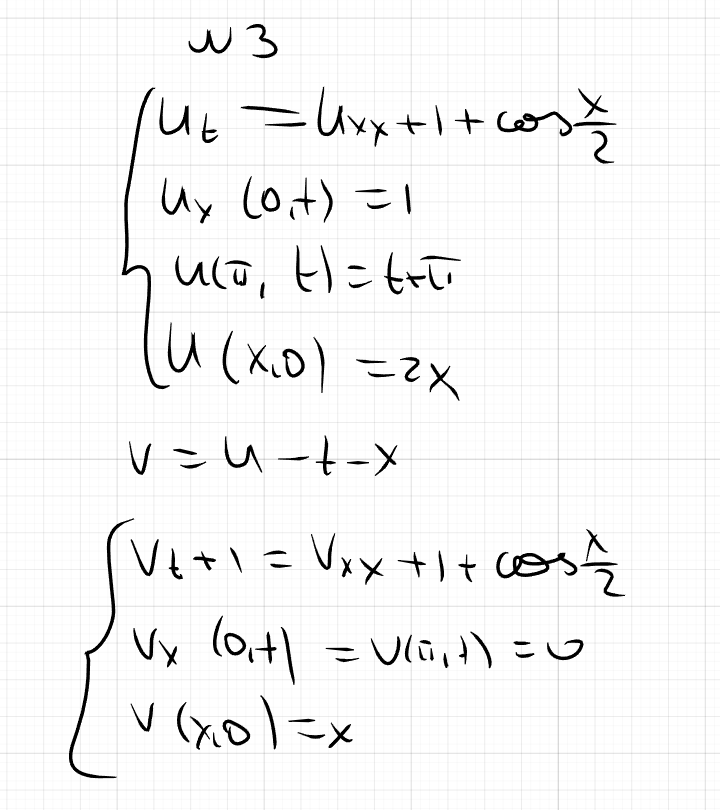 N3
u_t = u_xx + 1 + cos x/2
u_x (0,t) = 1
u(π, t) = t+π
u (x,0) = 2x
v = u - t - x
v_t + 1 = v_xx + 1 + cos x/2
v_x (0,t) = v(π,t) = 0
v (x,0) = x